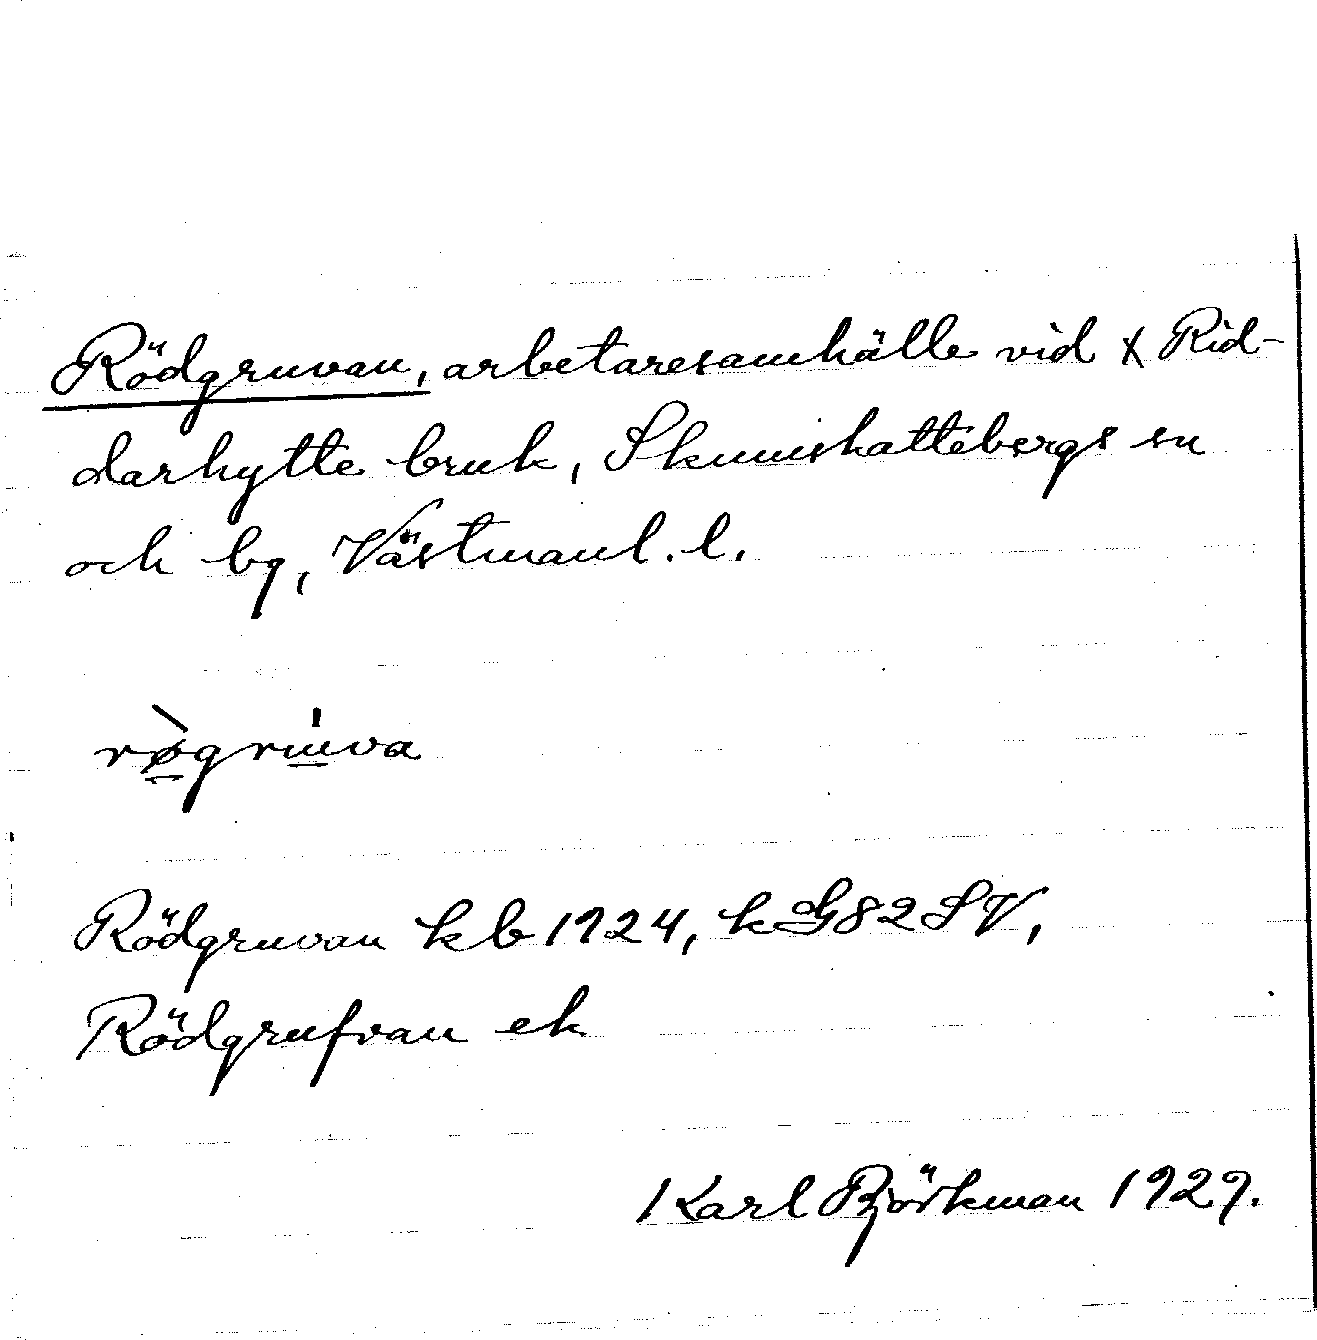 Rödgruvan, arbetaresamhälle vid x Rid-
darhytte bruk, Skinnskattebergs sn
och bg, Västmanl. l.
rø̀gru̍va
Rödgruvan kb 1924, k G82SV,
Rödgrufvan ek
Karl Björkman 1929.